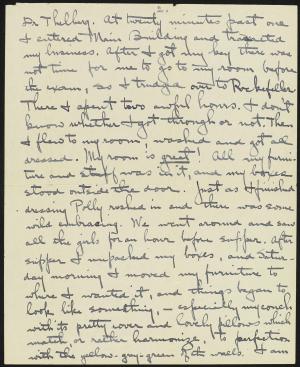 2.
Dr. Thelberg. At twenty minutes past one
I entered Main Building and transacted
my business. After I got my key there was
not time for me to go to my room before
the exam, so I trudged over to Rockefeller.
There I spent two awful hours. I don't
know whether I got through or not. Then
I flew to my room, washed and got all
dressed. My room is great! All my furni-
ture and stuff was in it, and my boxes
stood outside the door. Just as I finished
dressing Polly rushed in and there was some
wild embracing. We went around and saw
all the girls for an hour before supper. After
supper I unpacked my boxes, and Satur-
day morning I moved my furniture to
where I wanted it, and things began to
look like something, - especially my couch,
with its pretty cover and lovely pillows which
match, or rather harmonize, to perfection
with the yellow-grey-green of the walls. I am